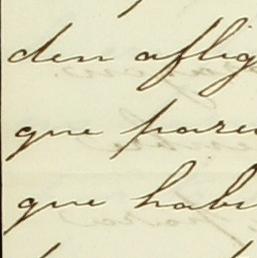 den aflig
que pare
que hab